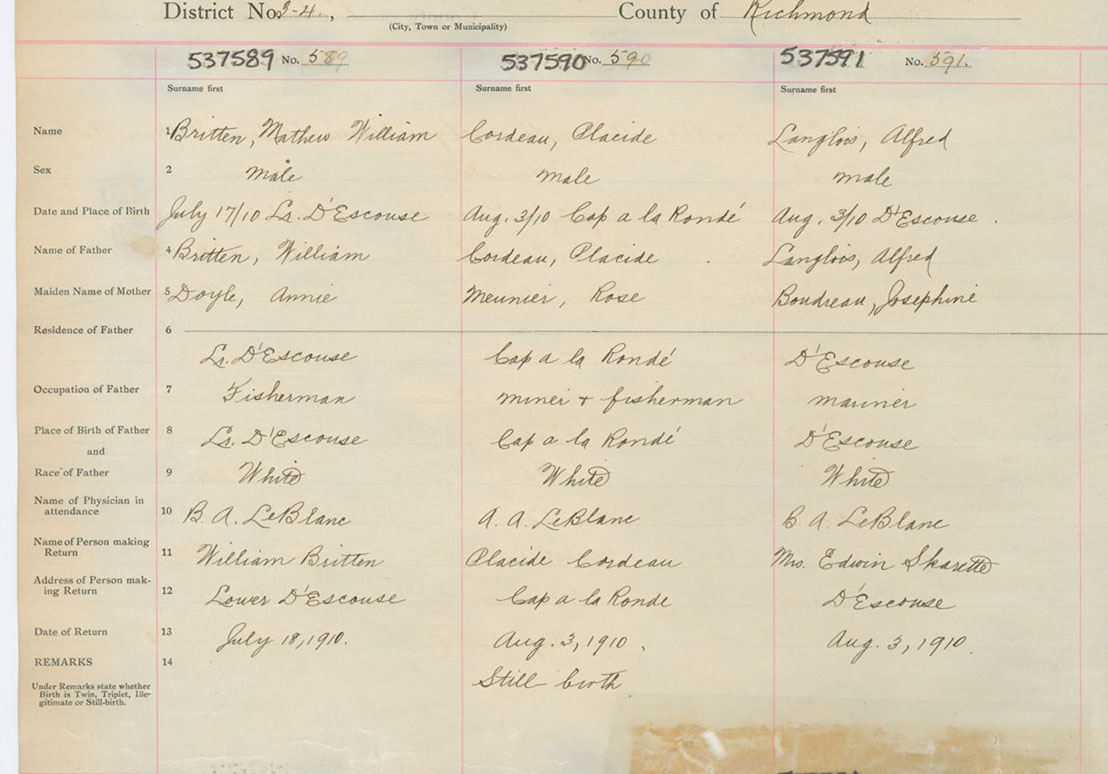 District No. 3-4., County of Richmond
(City, Town or Municipality)
537589 No. 589 537590 No. 590 537591 No. 591.
Surname first Surname first Surname first
Name 1 Britten, Mathew William Cordeau, Placide Langlois, Alfred
Sex 2 male male male
Date and Place of Birth July 17/10 Lr. D'Escouse Aug. 3/10 Cap a la Rondé Aug. 3/10 D'Escouse.
Name of Father 4 Britten, William Cordeau, Placide Langlois, Alfred
Maiden Name of Mother 5 Doyle, Annie Meunier, Rose Boudreau, Josephine
Residence of Father 6
Lr. D'Escouse Cap a la Rondé D'Escouse
Occupation of Father 7 Fisherman miner + fisherman mariner
Place of Birth of Father 8 Lr. D'Escouse Cap a la Rondé D'Escouse
and
Race of Father 9 White White White
Name of Physician in
attendance 10 B. A. LeBlanc A. A. LeBlanc B. A. LeBlanc
Name of Person making
Return 11 William Britten Placide Cordeau Mrs. Edwin Skarette
Address of Person mak-
ing Return 12 Lower D'Escouse Cap a la Ronde D'Escouse
Date of Return 13 July 18, 1910. Aug. 3, 1910. Aug. 3, 1910.
REMARKS 14
Under Remarks state whether
Birth is Twin, Triplet, Ille-
gitimate or Still-birth.
Still birth